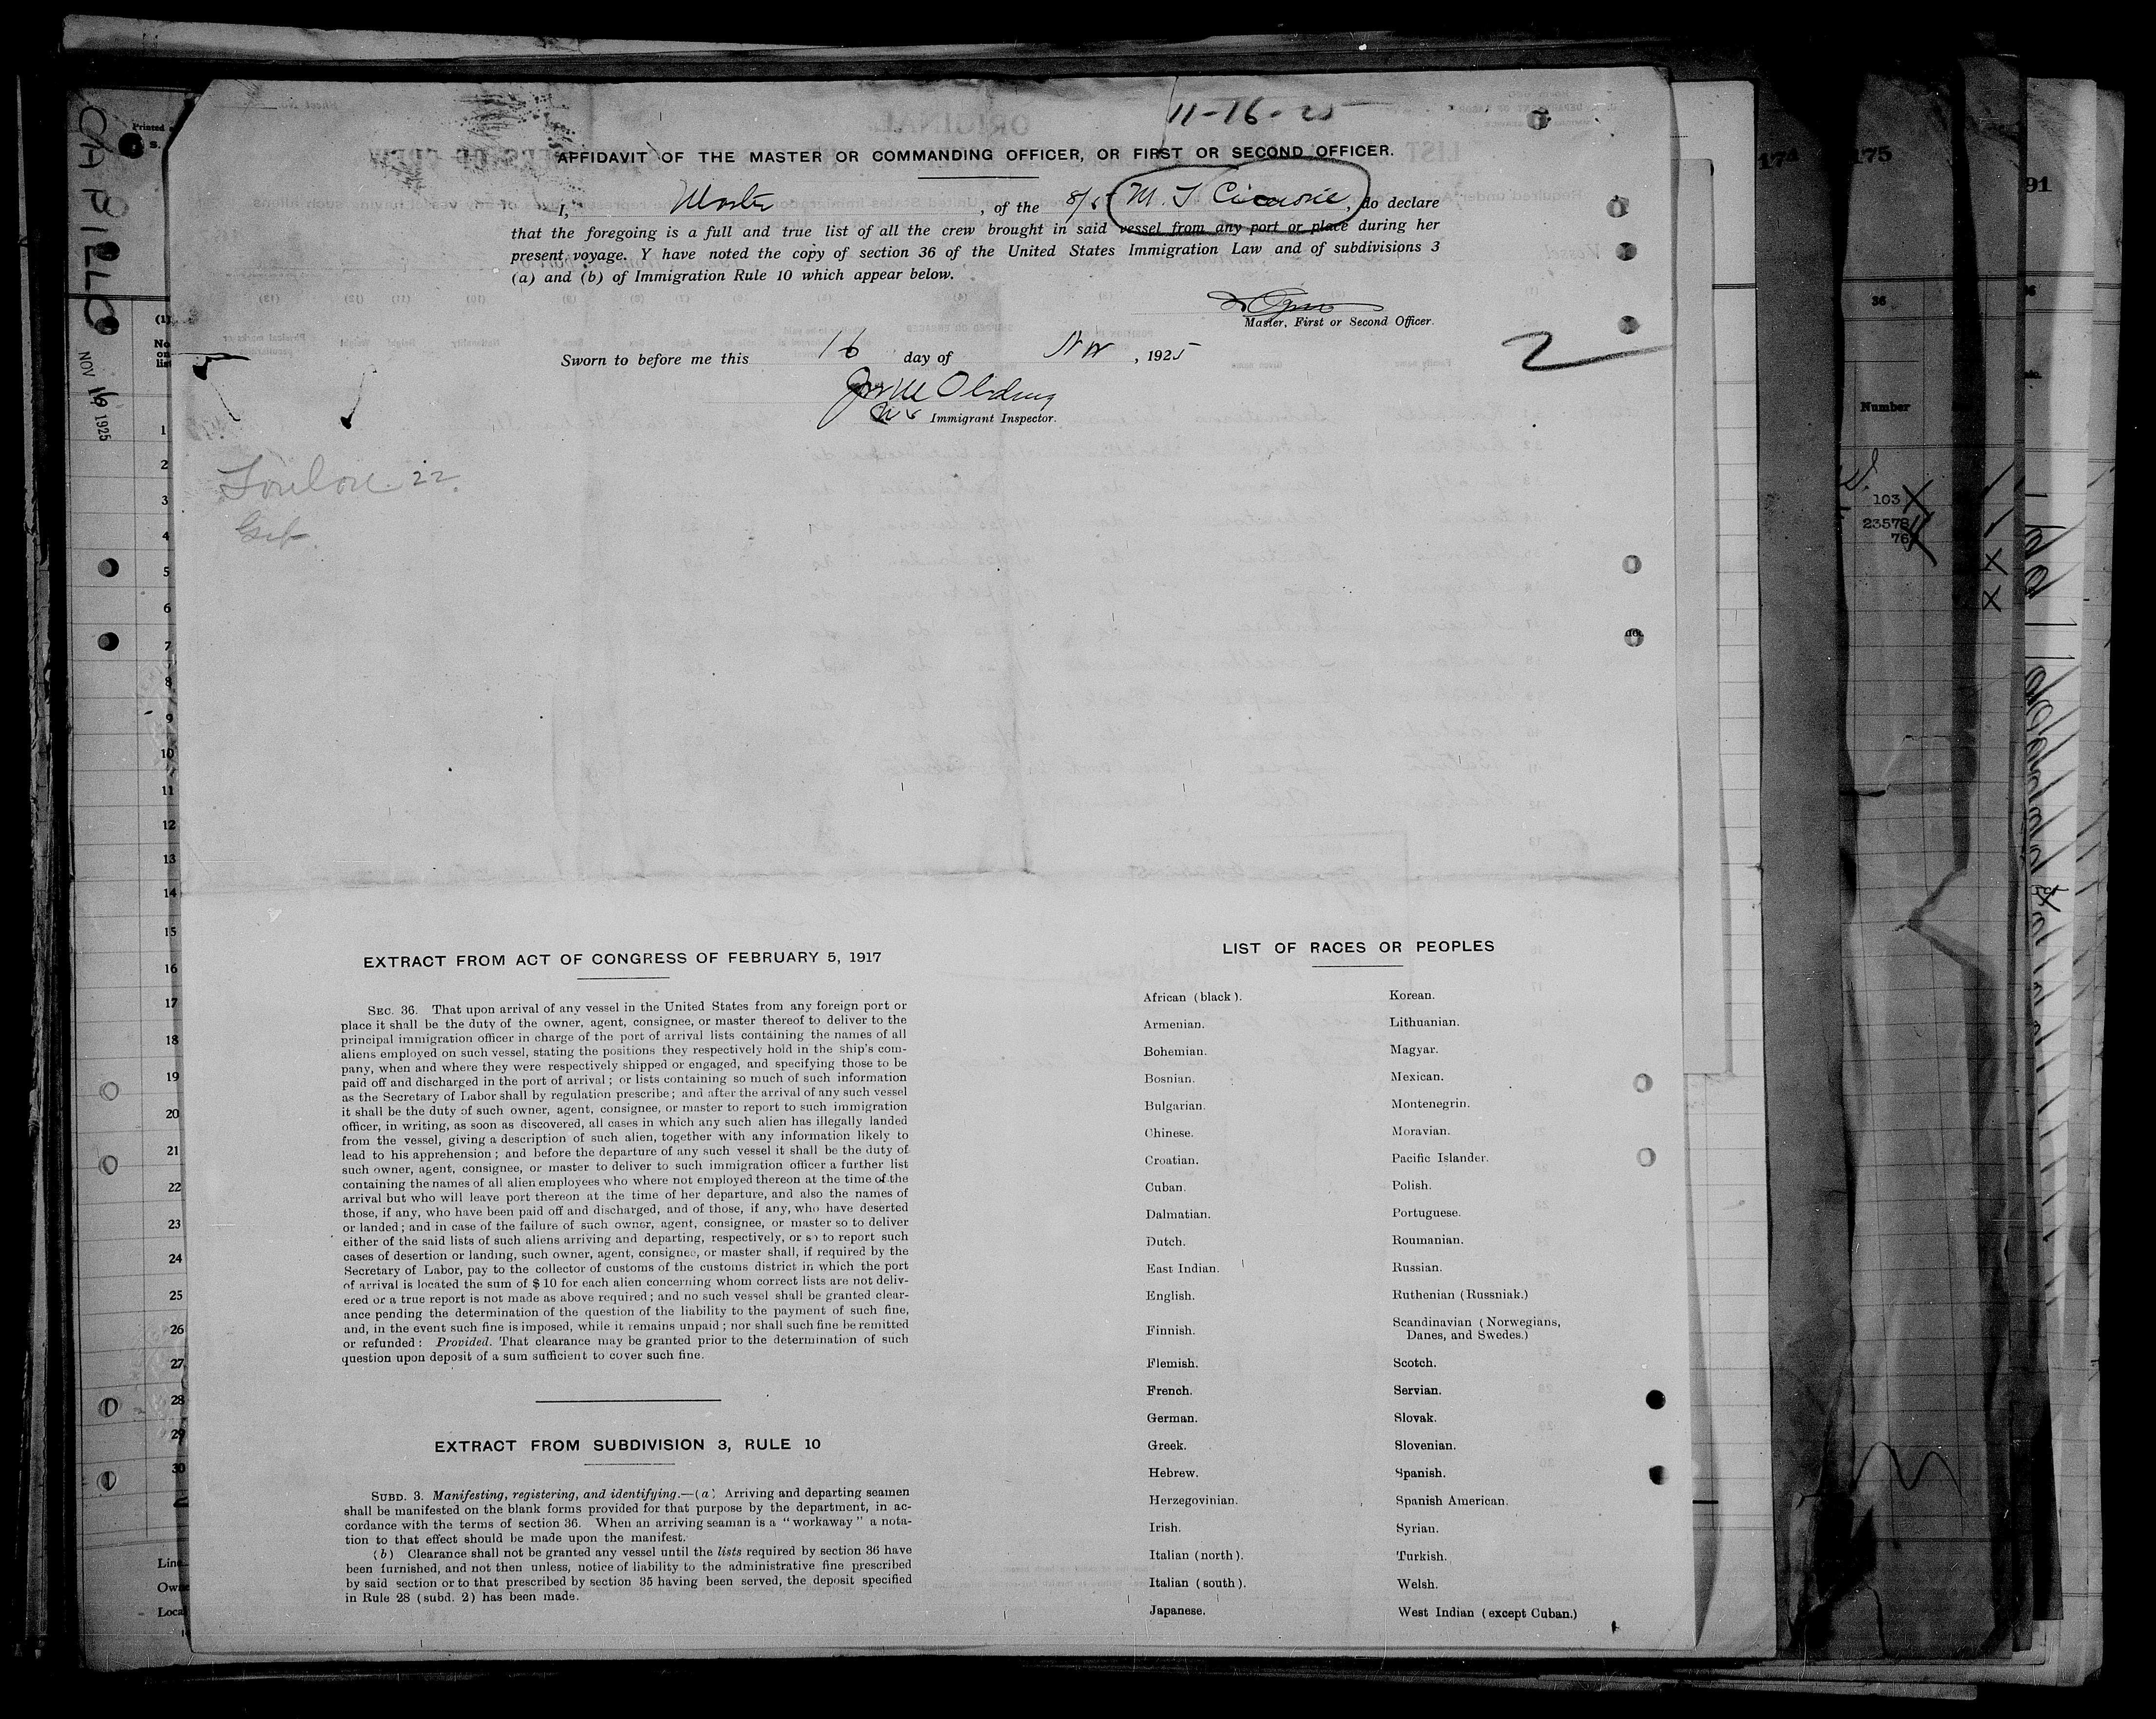 11-16-25
AFFIDAVIT OF THE MASTER OR COMMANDING OFFICER, OR FIRST OR SECOND OFFICER.
I, Master, of the S/S M. T. , do declare
that the foregoing is a full and true list of all the crew brought in said vessel from any port or place during her
present voyage. Y have noted the copy of section 36 of the United States Immigration Law and of subdivisions 3
(a) and (b) of Immigration Rule 10 which appear below.
Master, First or Second Officer.
2
Sworn to before me this 16 day of Nov, 1925
Immigrant Inspector.
22.
EXTRACT FROM ACT OF CONGRESS OF FEBRUARY 5, 1917
SEC. 36. That upon arrival of any vessel in the United States from any foreign port or
place it shall be the duty of the owner, agent, consignee, or master thereof to deliver to the
principal immigration officer in charge of the port of arrival lists containing the names of all
aliens employed on such vessel, stating the positions they respectively hold in the ship's com-
pany, when and where they were respectively shipped or engaged, and specifying those to be
paid off and discharged in the port of arrival; or lists containing so much of such information
as the Secretary of Labor shall by regulation prescribe; and after the arrival of any such vessel
it shall be the duty of such owner, agent, consignee, or master to report to such immigration
officer, in writing, as soon as discovered, all cases in which any such alien has illegally landed
from the vessel, giving a description of such alien, together with any information likely to
lead to his apprehension; and before the departure of any such vessel it shall be the duty of
such owner, agent, consignee, or master to deliver to such immigration officer a further list
containing the names of all alien employees who where not employed thereon at the time of the
arrival but who will leave port thereon at the time of her departure, and also the names of
those, if any, who have been paid off and discharged, and of those, if any, who have deserted
or landed; and in case of the failure of such owner, agent, consignee, or master so to deliver
either of the said lists of such aliens arriving and departing, respectively, or so to report such
cases of desertion or landing, such owner, agent, consignee, or master shall, if required by the
Secretary of Labor, pay to the collector of customs of the customs district in which the port
of arrival is located the sum of $10 for each alien concerning whom correct lists are not deliv-
ered or a true report is not made as above required; and no such vessel shall be granted clear-
ance pending the determination of the question of the liability to the payment of such fine,
and, in the event such fine is imposed, while it remains unpaid; nor shall such fine be remitted
or refunded: Provided. That clearance may be granted prior to the determination of such
question upon deposit of a sum sufficient to cover such fine.
EXTRACT FROM SUBDIVISION 3, RULE 10
SUBD. 3. Manifesting, registering, and identifying.—(a) Arriving and departing seamen
shall be manifested on the blank forms provided for that purpose by the department, in ac-
cordance with the terms of section 36. When an arriving seaman is a "workaway" a nota-
tion to that effect should be made upon the manifest.
(b) Clearance shall not be granted any vessel until the lists required by section 36 have
been furnished, and not then unless, notice of liability to the administrative fine prescribed
by said section or to that prescribed by section 35 having been served, the deposit specified
in Rule 28 (subd. 2) has been made.
LIST OF RACES OR PEOPLES
African (black).
Armenian.
Bohemian.
Bosnian.
Bulgarian.
Chinese.
Croatian.
Cuban.
Dalmatian.
Dutch.
East Indian.
English.
Finnish.
Flemish.
French.
German.
Greek.
Hebrew.
Herzegovinian.
Irish.
Italian (north).
Italian (south).
Japanese.
Korean.
Lithuanian.
Magyar.
Mexican.
Montenegrin.
Moravian.
Pacific Islander.
Polish.
Portuguese.
Roumanian.
Russian.
Ruthenian (Russniak.)
Scandinavian (Norwegians,
Danes, and Swedes.)
Scotch.
Servian.
Slovak.
Slovenian.
Spanish.
Spanish American.
Syrian.
Turkish.
Welsh.
West Indian (except Cuban.)
Printed
S.
NOV 16 1925
(1)
No.
on
list
1
2
3
4
5
6
7
8
9
10
11
12
13
14
15
16
17
18
19
20
21
22
23
24
25
26
27
28
29
30
Line
174
175
91
36
Number
103
23578
76